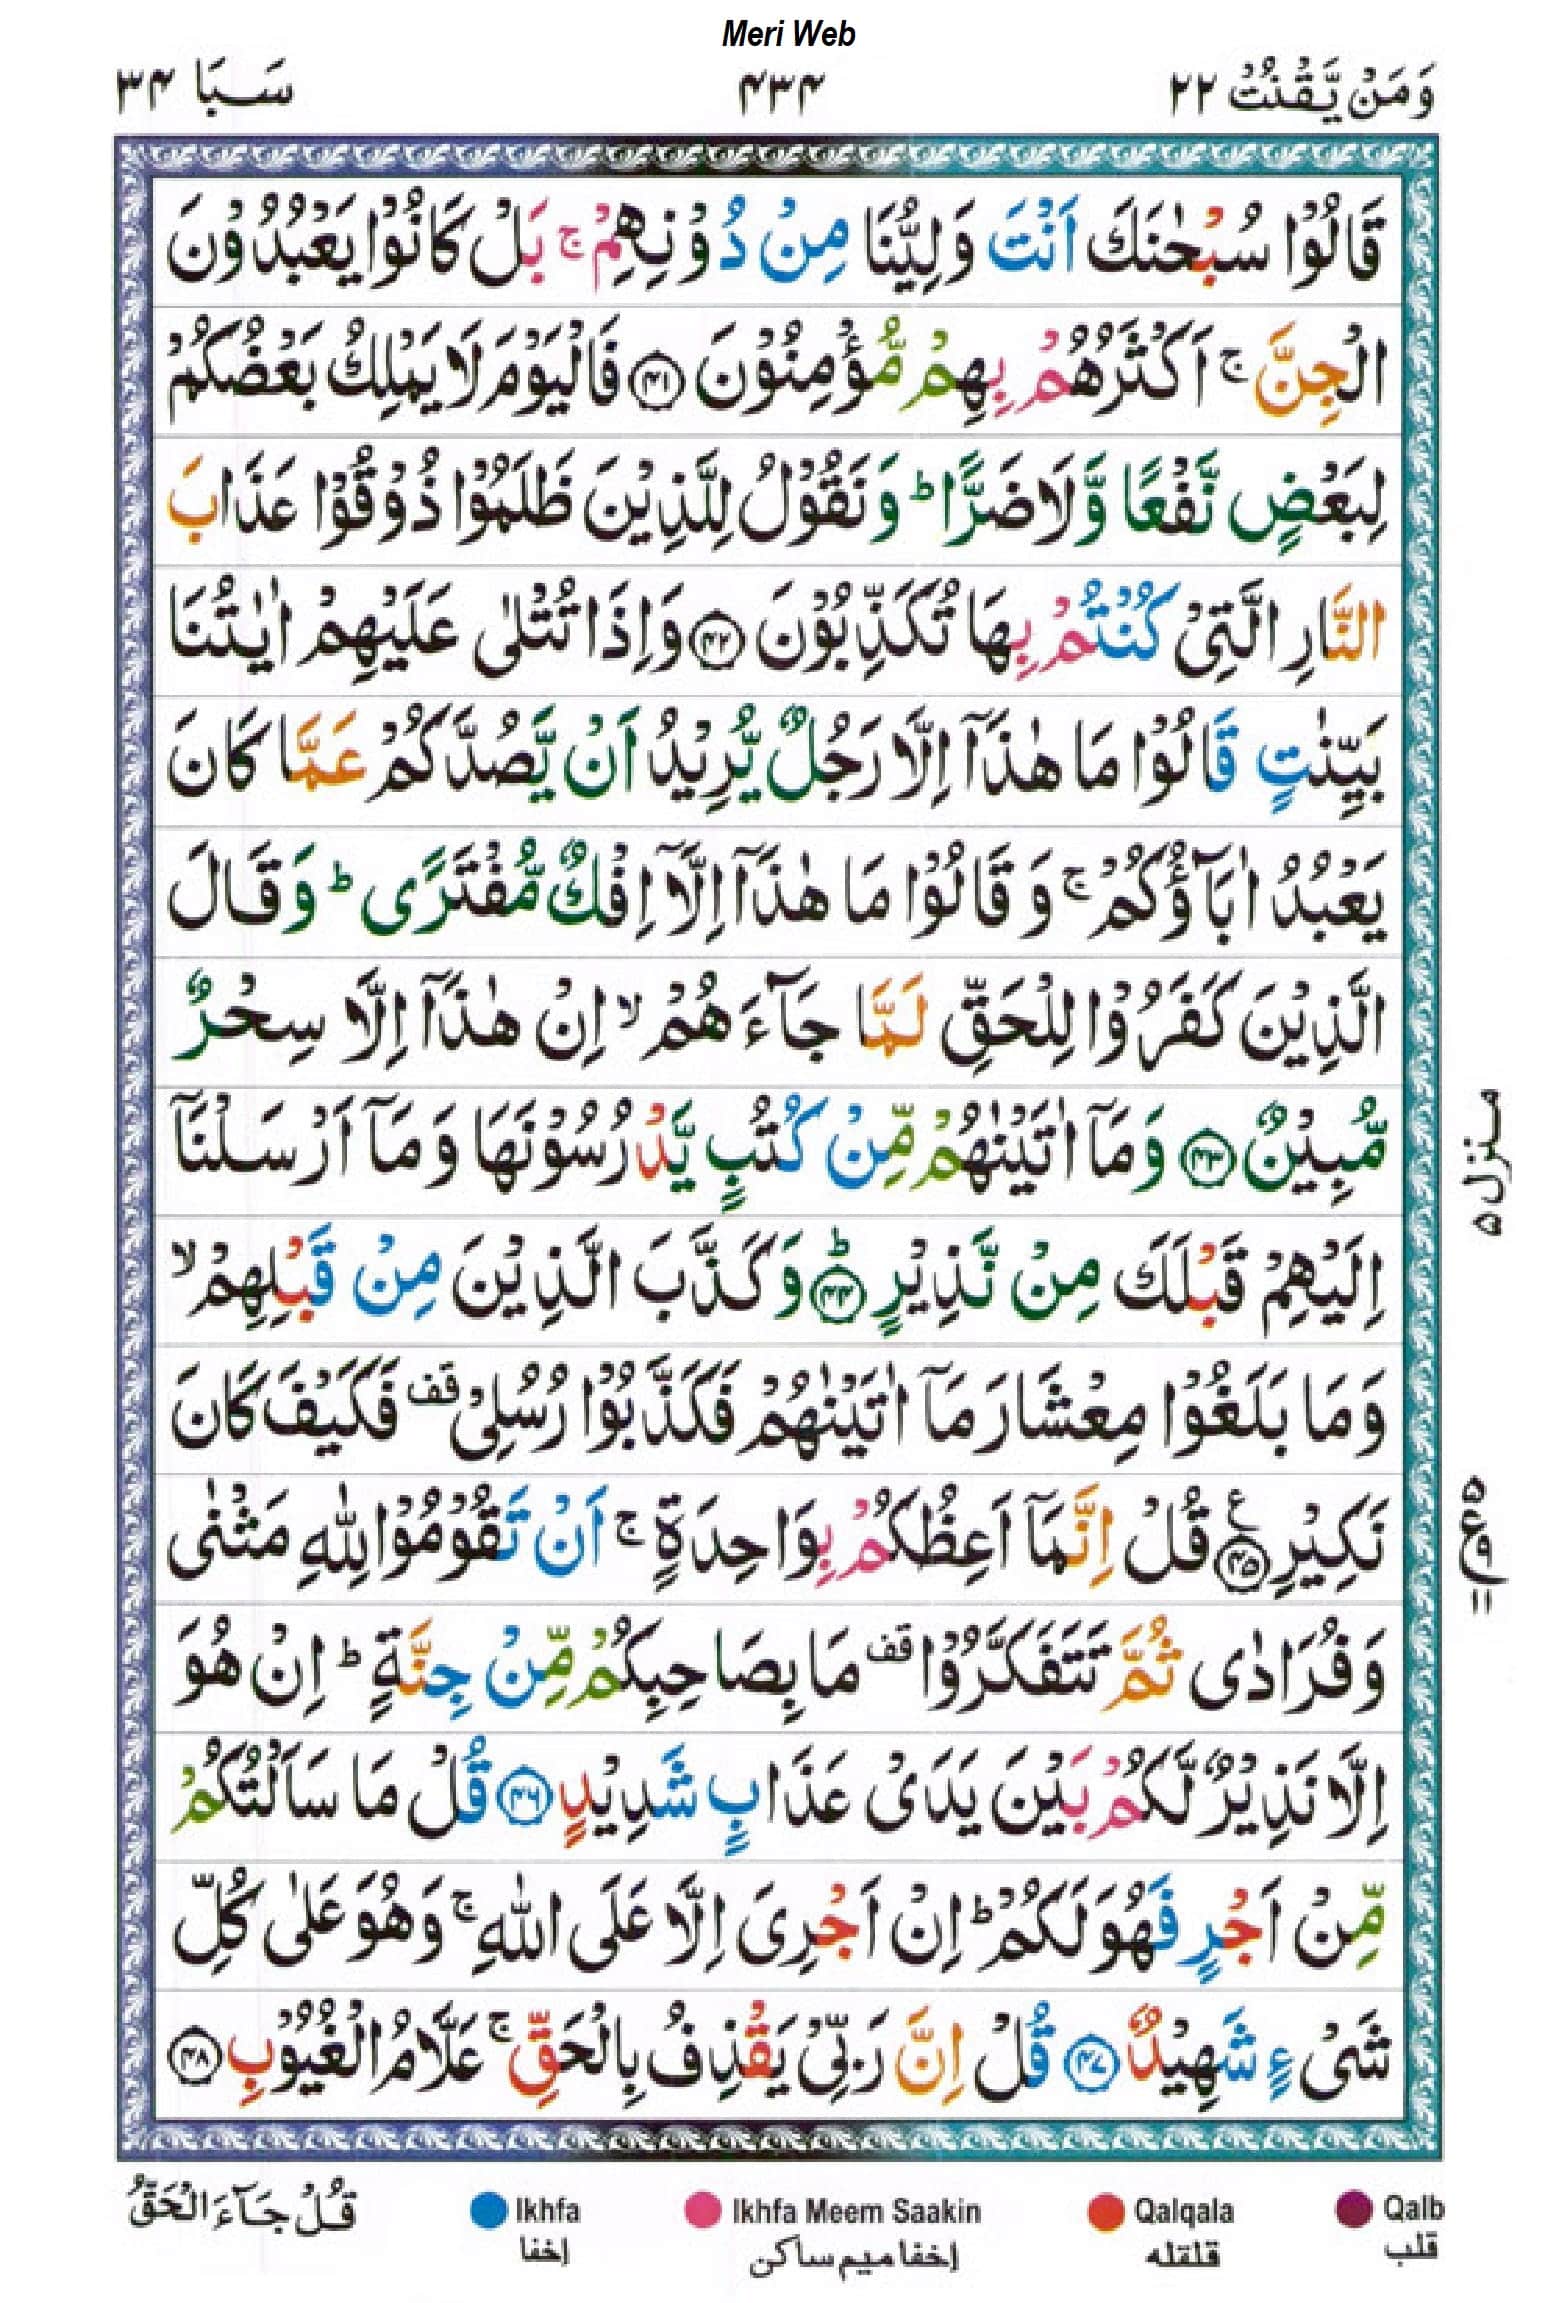 Meri Web
وَمَنْ يَّقْنُتْ ٢٢ ۴٣۴ سَبَا ٣۴
قَالُوْا سُبْحٰنَكَ اَنْتَ وَلِيُّنَا مِنْ دُوْنِهِمْ ۚ بَلْ كَانُوْا يَعْبُدُوْنَ
الْجِنَّ ۚ اَكْثَرُهُمْ بِهِمْ مُّؤْمِنُوْنَ ﴿۴۱﴾ فَالْيَوْمَ لَا يَمْلِكُ بَعْضُكُمْ
لِبَعْضٍ نَّفْعًا وَّلَا ضَرًّا ؕ وَنَقُوْلُ لِلَّذِيْنَ ظَلَمُوْا ذُوْقُوْا عَذَابَ
النَّارِ الَّتِىْ كُنْتُمْ بِهَا تُكَذِّبُوْنَ ﴿۴۲﴾ وَاِذَا تُتْلٰى عَلَيْهِمْ اٰيٰتُنَا
بَيِّنٰتٍ قَالُوْا مَا هٰذَاۤ اِلَّا رَجُلٌ يُّرِيْدُ اَنْ يَّصُدَّكُمْ عَمَّا كَانَ
يَعْبُدُ اٰبَآؤُكُمْ ۚ وَقَالُوْا مَا هٰذَاۤ اِلَّاۤ اِفْكٌ مُّفْتَرًى ؕ وَقَالَ
الَّذِيْنَ كَفَرُوْا لِلْحَقِّ لَمَّا جَآءَهُمْ ۙ اِنْ هٰذَاۤ اِلَّا سِحْرٌ
مُّبِيْنٌ ﴿۴۳﴾ وَمَاۤ اٰتَيْنٰهُمْ مِّنْ كُتُبٍ يَّدْرُسُوْنَهَا وَمَاۤ اَرْسَلْنَاۤ
اِلَيْهِمْ قَبْلَكَ مِنْ نَّذِيْرٍ ؕ﴿۴۴﴾ وَكَذَّبَ الَّذِيْنَ مِنْ قَبْلِهِمْ ۙ
وَمَا بَلَغُوْا مِعْشَارَ مَاۤ اٰتَيْنٰهُمْ فَكَذَّبُوْا رُسُلِىْ قف فَكَيْفَ كَانَ
نَكِيْرِ ﴿۴۵﴾ ع قُلْ اِنَّمَاۤ اَعِظُكُمْ بِوَاحِدَةٍ ۚ اَنْ تَقُوْمُوْا لِلّٰهِ مَثْنٰى
وَفُرَادٰى ثُمَّ تَتَفَكَّرُوْا قف مَا بِصَاحِبِكُمْ مِّنْ جِنَّةٍ ؕ اِنْ هُوَ
اِلَّا نَذِيْرٌ لَّكُمْ بَيْنَ يَدَىْ عَذَابٍ شَدِيْدٍ ﴿۴۶﴾ قُلْ مَا سَاَلْتُكُمْ
مِّنْ اَجْرٍ فَهُوَ لَكُمْ ؕ اِنْ اَجْرِىَ اِلَّا عَلَى اللّٰهِ ۚ وَهُوَ عَلٰى كُلِّ
شَىْءٍ شَهِيْدٌ ﴿۴۷﴾ قُلْ اِنَّ رَبِّىْ يَقْذِفُ بِالْحَقِّ ۚ عَلَّامُ الْغُيُوْبِ ﴿۴۸﴾
منزل ۵
ع
قُلْ جَآءَ الْحَقُّ
Ikhfa Ikhfa Meem Saakin Qalqala Qalb
إخفا إخفا ميم ساكن قلقله قلب